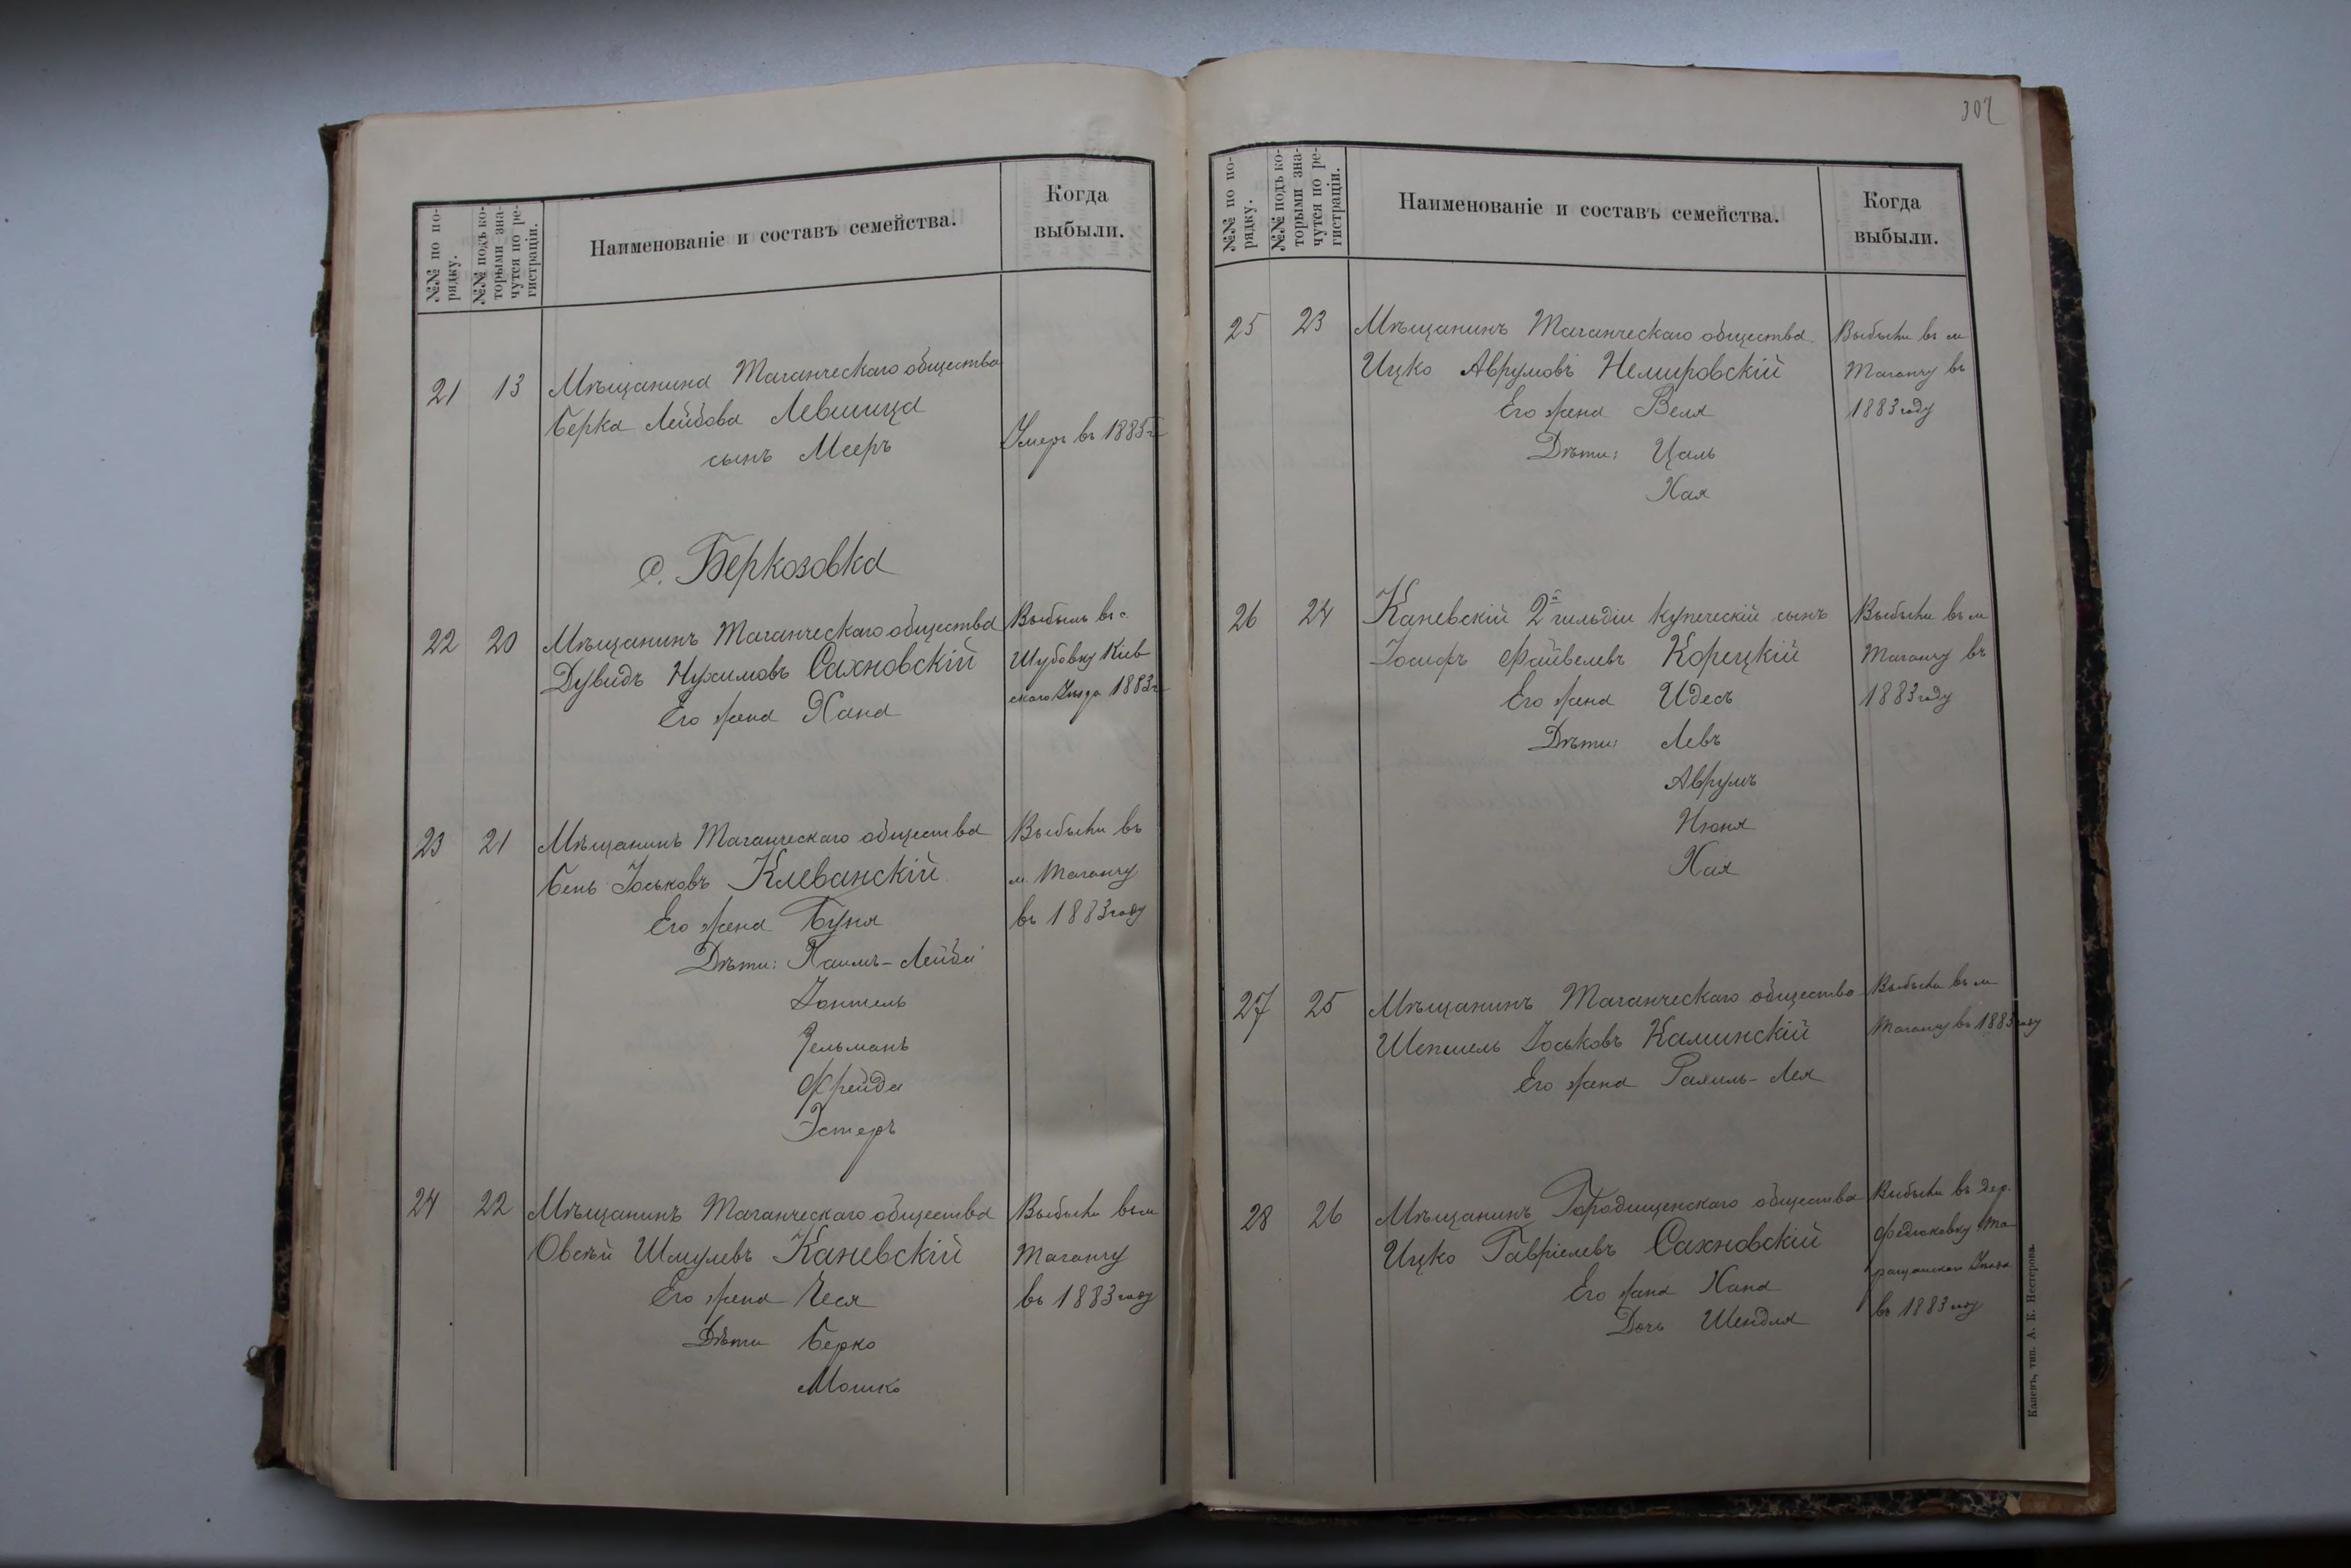 №№ по по-
рядку.
№№ подъ ко-
торыми зна-
чутся по ре-
гистраціи.
Наименованіе и составъ семейства.
Когда
выбыли.
21 13 Мѣщанина Таганческаго общества
Берка Лейбова Левшица
сынъ Мееръ Умеръ въ 1885 г
с. Беркозовка
22 20 Мѣщанинъ Таганческаго общества Выбылъ въ с.
Дувидъ Нухимовъ Сахновскій Шубовку Кіев
Его жена Хана скаго Уѣзда 1883 г
23 21 Мѣщанинъ Таганческаго общества Выбыли въ
Бень Іоськовъ Клеванскій м. Таганчу
Его жена Буня въ 1883 году
Дѣти: Хаимъ-Лейба
Зельманъ
Фрейда
Эстеръ
24 22 Мѣщанинъ Таганческаго общества Выбыли въ м
Овсѣй Шмулевъ Каневскій Таганчу
Его жена Чеся въ 1883 году
Дѣти Берко
Мошко
307
№№ по по-
рядку.
№№ подъ ко-
торыми зна-
чутся по ре-
гистраціи.
Наименованіе и составъ семейства.
Когда
выбыли.
25 23 Мѣщанинъ Таганческаго общества Выбыли въ м
Ицко Аврумовъ Немировскій Таганчу въ
Его жена Веля 1883 году
Дѣти: Цаль
Хая
26 24 Каневскій 2й гильдіи купеческій сынъ Выбыли въ м
Іосифъ Файвелевъ Корецкій Таганчу въ
Его жена Идесъ 1883 году
Дѣти: Левъ
Аврумъ
Нюня
Хая
27 25 Мѣщанинъ Таганческаго общества Выбыли въ м
Шепшель Іоськовъ Каминскій Таганчу въ 1883 году
Его жена Рахиль-Лея
28 26 Мѣщанинъ Городищенскаго общества Выбыли въ дер.
Ицко Гавріелевъ Сахновскій Федюковку Та
Его жена Хана ращанскаго Уѣзда
Дочь Шендля въ 1883 году
Каневъ, тип. А. К. Нестерова.